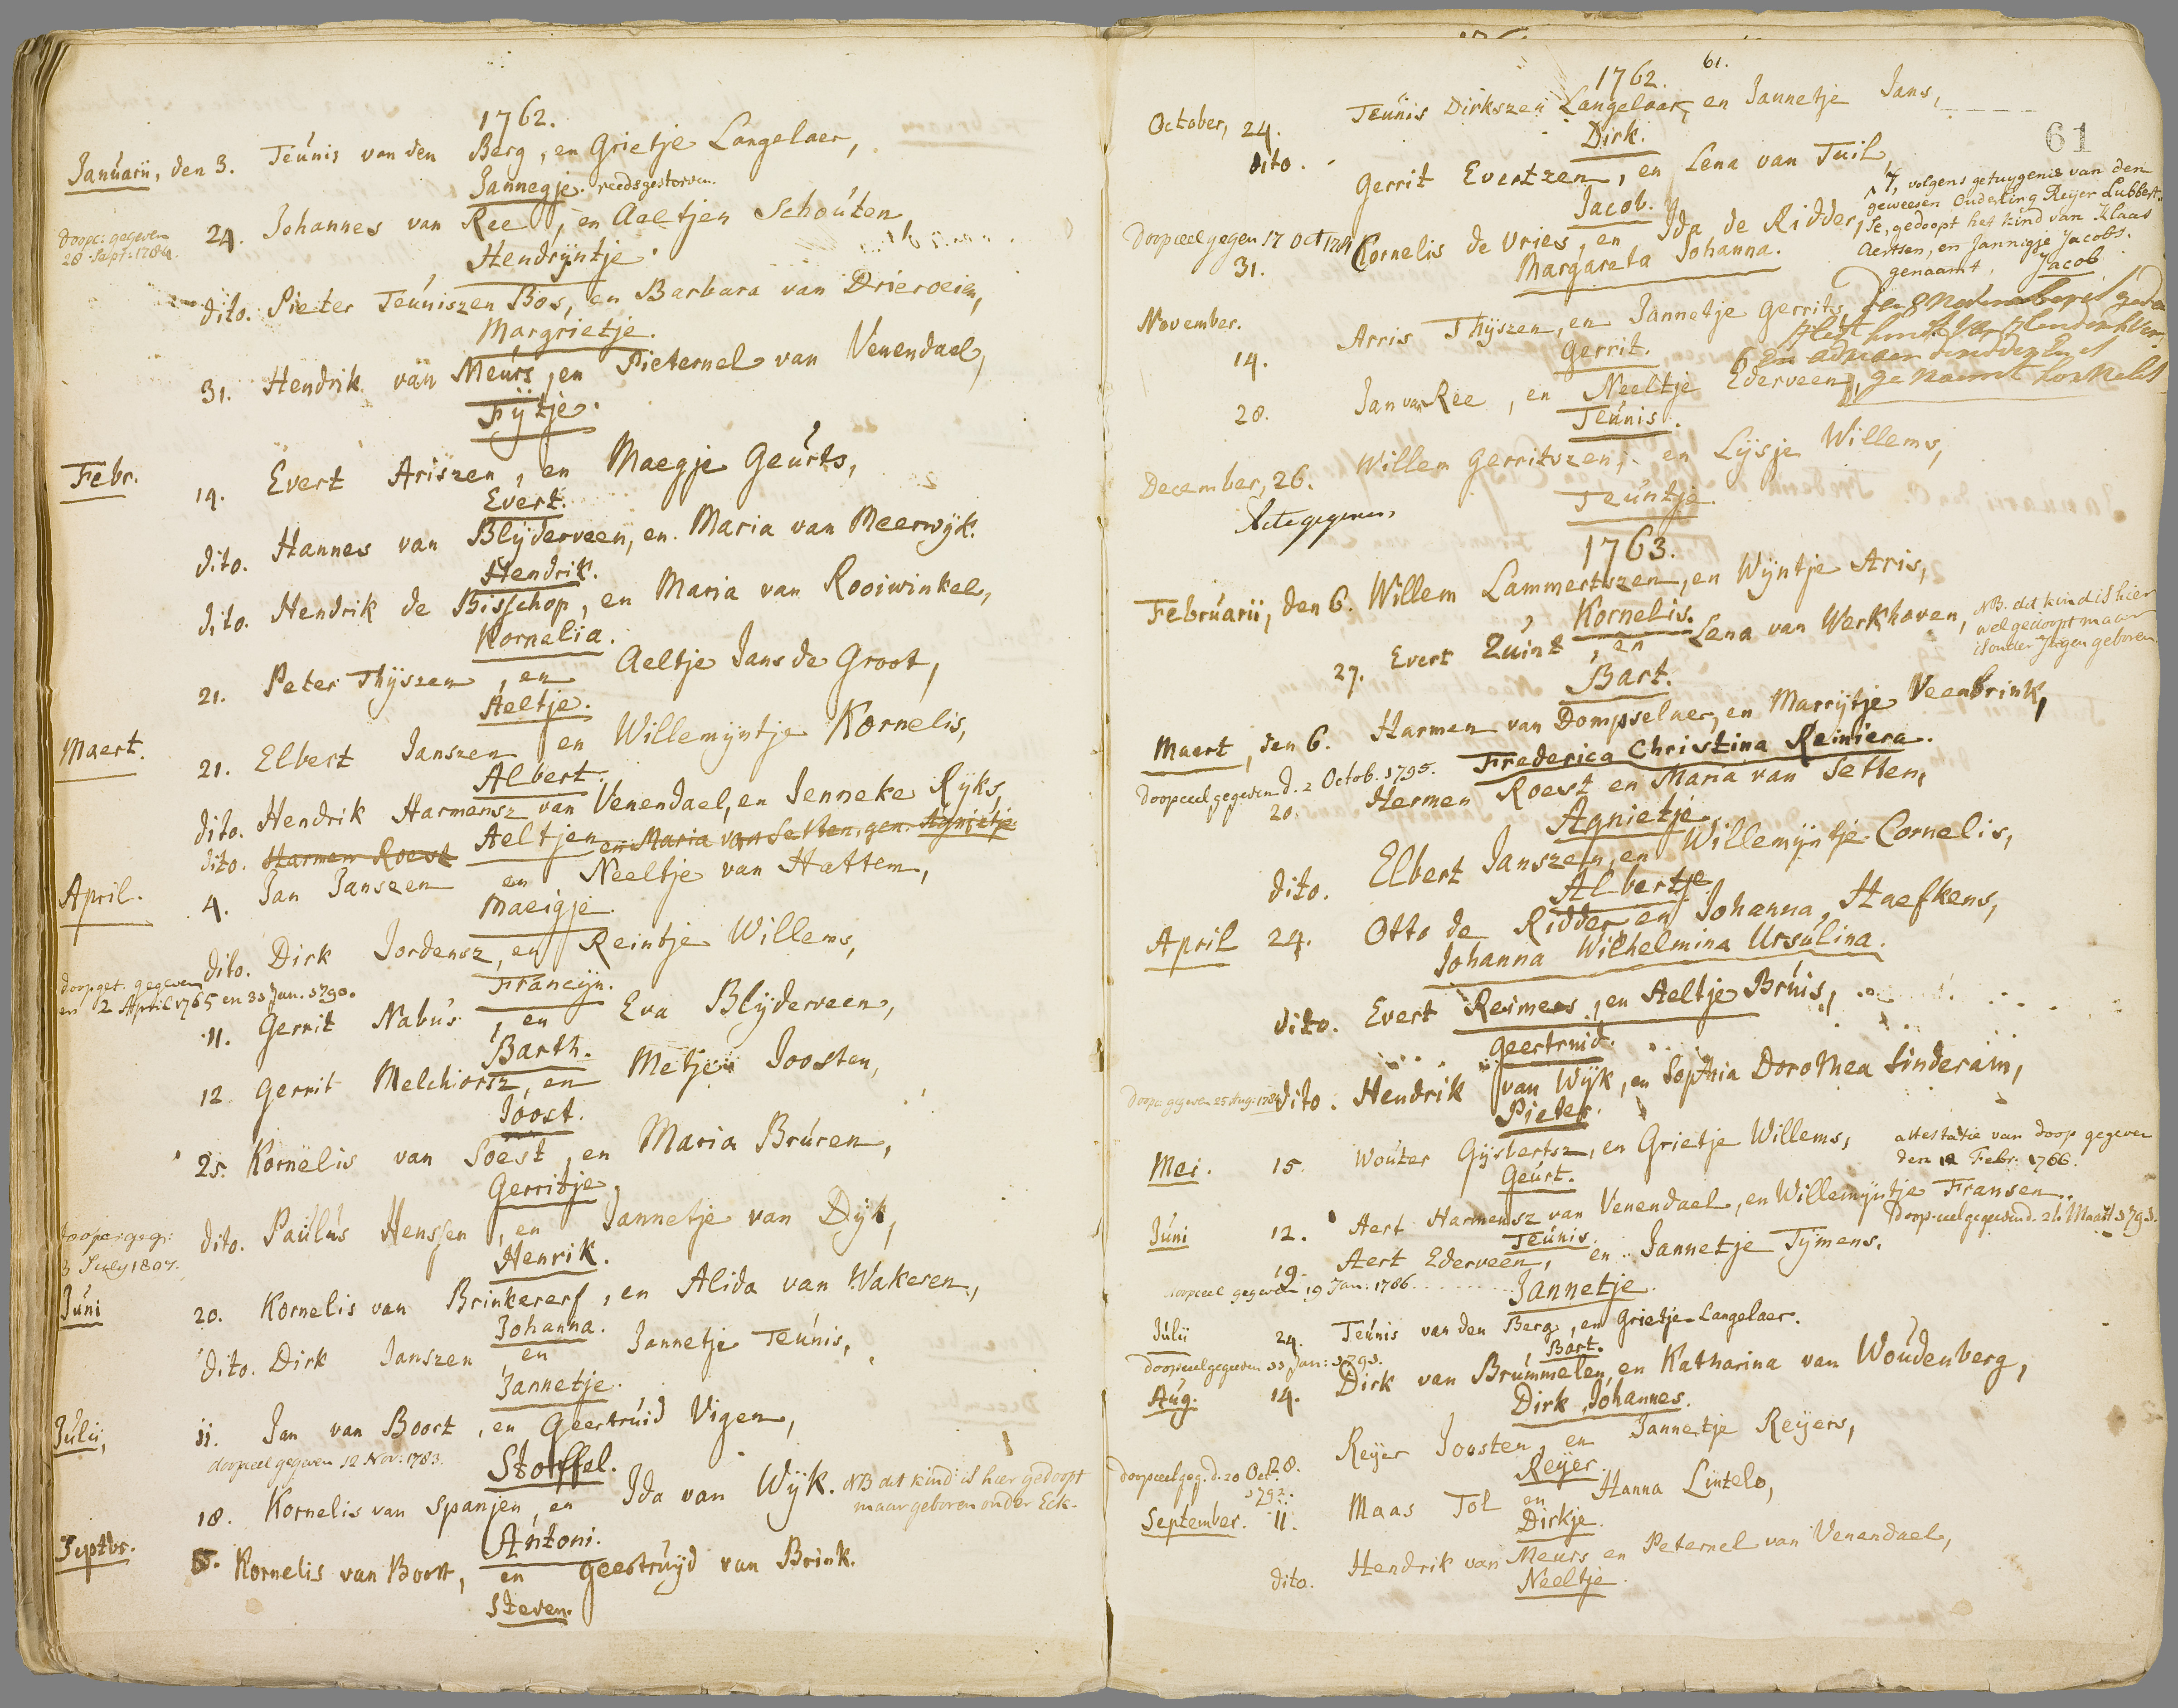 1762.
Januarii, den 3. Teunis van den Berg, en Grietje Langelaer,
Jannegje. reeds gestorven.
24. Johannes van Ree, en Aeltjen Schouten,
doopc: gegeven
28 Sept: 1784.
Hendrijntje.
dito. Pieter Teuniszen Bos, en Barbara van Drieroeien,
Margrietje.
31. Hendrik van Meurs, en Pieternel van Venendael,
Fijtje.
Febr.
14. Evert Ariszen, en Maegje Geurts,
Evert.
dito. Hannes van Blyderveen, en Maria van Meerwyk.
Hendrik.
dito. Hendrik de Bisschop, en Maria van Rooiwinkel,
Kornelia.
21. Peter Thyszen, en Aeltje Jans de Groot,
Aeltje.
Maert.
21. Elbert Janszen en Willemyntje Kornelis,
Albert.
dito. Hendrik Harmensz van Venendael, en Jenneke Ryks
Aeltjen
dito. Harmen Roest en Maria van Setten, gen. Agnietje
April. 4. Jan Janszen en Neeltje van Hattem,
Maeigje.
dito. Dirk Jordensz, en Reintje Willems,
doopget. gegeven
en 2 April 1765 en 33 Jan. 1790.
Francyn.
11. Gerrit Nabus, en Eva Blyderveen,
Barth.
12. Gerrit Melchiorsz, en Metjen Joosten,
Joost.
25. Kornelis van Soest, en Maria Bruren,
Gerritje.
dito. Paulus Henssen, en Jannetje van Dyk,
3 July 1807.
Henrik.
Juni 20. Kornelis van Brinkererf, en Alida van Wakeren,
Johanna.
dito. Dirk Janszen en Jannetje Teunis,
Jannetje.
Julii, 11. Jan van Boort, en Geertruid Vigen,
doopceel gegeven 12 Nov: 1783.
Stoffel.
18. Kornelis van Spanjen, en Ida van Wyk. NB dit kind is hier gedoopt
maar geboren onder Eck.
Antoni.
Septbr. Kornelis van Boort, en Geertruyd van Brink.
Steven.
61.
1762.
61
October, 24. Teunis Dirkszen Langelaar, en Jannetje Jans,
Dirk.
dito. Gerrit Evertzen, en Lena van Tuil,
Jacob.
7, volgens getuygenis van den
geweesen Ouderling Reyer Lubbert
se, gedoopt het kind van Klaas
Aertsen, en Jannigje Jacobs.
genaamt, Jacob
Doopceel gegeven 17 Oct
31. Cornelis de Vries, en Ida de Ridder,
Margareta Johanna.
November.
14. Arris Thyszen, en Jannetje Gerrits,
Gerrit.
28. Jan van Ree, en Neeltje Ederveen,
Teunis.
December, 26. Willem Gerritszen, en Lysje Willems,
Acte gegeven
Teuntje.
1763.
Februarii, den 6. Willem Lammertszen, en Wyntje Aris,
Kornelis.
27. Evert Quint, en Lena van Werkhoven,
NB. dit kind is hier
wel gedoopt maar
is onder Jngen geboren
Bart.
Maert, den 6. Harmen van Dompselaer, en Marrytje Veenbrink,
Frederica Christina Reiniera.
doopceel gegeven d. 2 Octob. 1795.
20. Hermen Roest en Maria van Setten,
Agnietje.
dito. Elbert Janszen, en Willemyntje Cornelis,
Albertje
April 24. Otto de Ridder en Johanna Haefkens,
Johanna Wilhelmina Ursulina.
dito. Evert Reimers, en Aeltje Bruis,
Geertruid.
Doopc: gegeven 25 Aug: 1784
dito. Hendrik van Wyk, en Sophia Dorothea Sinderam,
Pieter.
Mei. 15. Wouter Gysbertsz, en Grietje Willems,
attestatie van doop gegeven
den 12 Febr. 1766.
Geurt.
Juni 12. Aert Harmensz van Venendael, en Willemyntje Fransen.
Teunis.
19. Aert Ederveen, en Jannetje Tymens.
doopceel gegeven 19 Jan: 1786
Jannetje.
Julii 24. Teunis van den Berg, en Grietje Langelaer.
Bart.
Aug. 14. Dirk van Brummelen, en Katharina van Woudenberg,
Dirk Johannes.
28. Reyer Joosten, en Jannetje Reyers,
doopceel geg. d. 20 Oct:
1792.
Reyer.
September. 11. Maas Tol en Hanna Lintelo,
Dirkje.
dito. Hendrik van Meurs en Peternel van Venendael,
Neeltje.